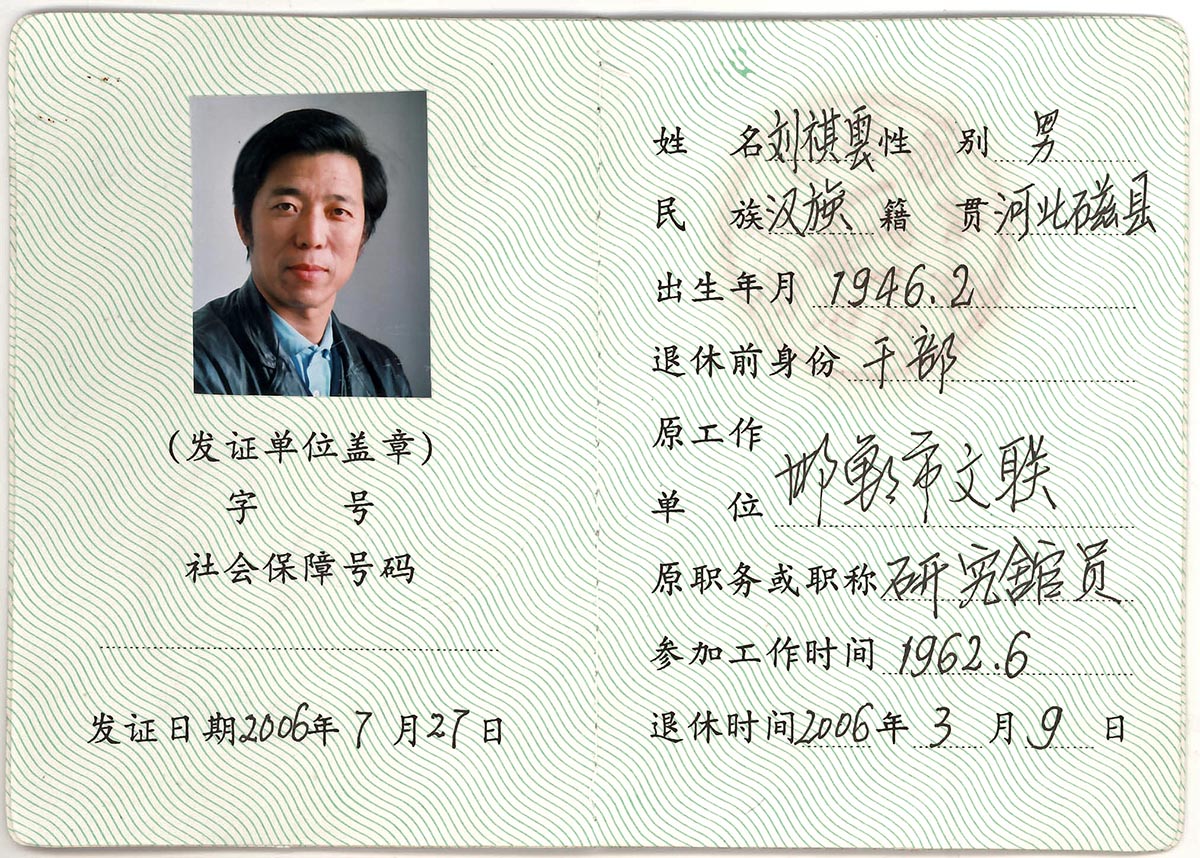 (发证单位盖章)
字 号
社会保障号码
发证日期2006年7月27日
姓 名 刘祺云 性 别 男
民 族 汉族 籍 贯 河北磁县
出生年月 1946.2
退休前身份 干部
原工作
单 位 邯郸市文联
原职务或职称 研究馆员
参加工作时间 1962.6
退休时间2006年3月9日